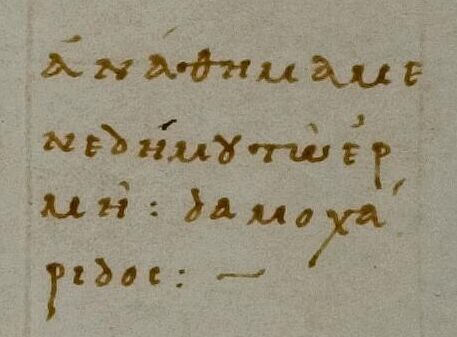 ἀνάθημα με
νεδήμου τῶ ἑρ
μῆ : δαμοχά
ριδος : —